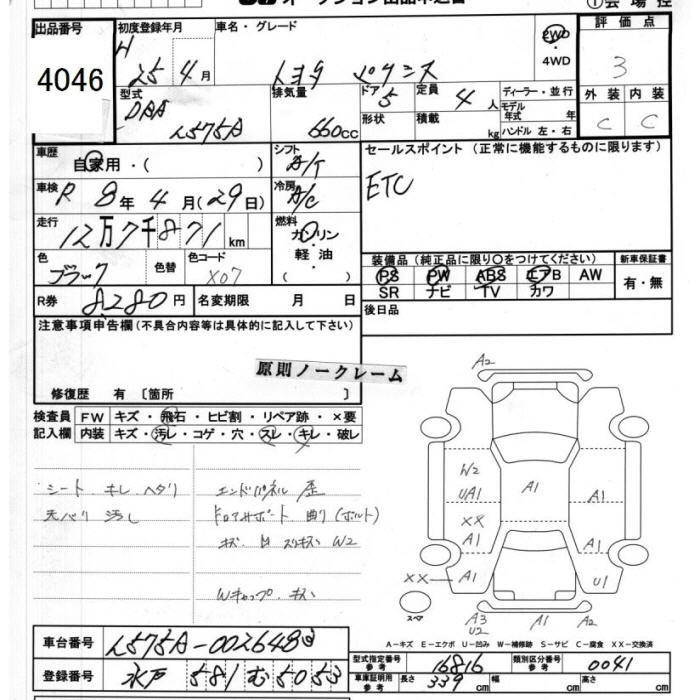 オークション出品申込書
① 会場控
出品番号 4046
初度登録年月 H 25年 4月
車名・グレード トヨタ ピクシス
2WD ・ 4WD
評価点 3
外装 C 内装 C
型式 DBA L575A
排気量 660cc
ドア 5 形状
定員 4人 積載 kg
ディーラー・並行
モデル年式 年
ハンドル 左・右
車歴 自家用・( )
シフト A/T
車検 R 8年 4月(29日)
冷房 A/C
走行 12万7千871km
燃料 ガソリン・軽油・( )
色 ブラック 色替 色コード X07
R券 8280円 名変期限 月 日
セールスポイント (正常に機能するものに限ります)
ETC
装備品(純正品に限り○をつけてください) 新車保証書
PS PW ABS エアB AW 有・無
SR ナビ TV カワ
後日品
注意事項申告欄(不具合内容等は具体的に記入して下さい)
原則ノークレーム
修復歴 有 〔箇所 〕
検査員記入欄
FW キズ・飛石・ヒビ割・リペア跡・×要
内装 キズ・汚レ・コゲ・穴・スレ・キレ・破レ
シート キレ ヘタリ
天ベリ 汚し
エンドパネル 歪
ドロアサポート 曲り(ボルト)
W2
Wキャップ キズ
A2
W2
UA1
A1
A1
XX
A1
A1
A1
XX
A1
U1
スペア
A3
U2
A1
A2
A-キズ E-エクボ U-凹み W-補修跡 S-サビ C-腐食 XX-交換済
車台番号 L575A-0026483
登録番号 水戸 581 む 5053
型式指定番号 参考 16816 類別区分番号 参考 0041
車庫証明用 参考 長さ 339cm 幅 cm 高さ cm